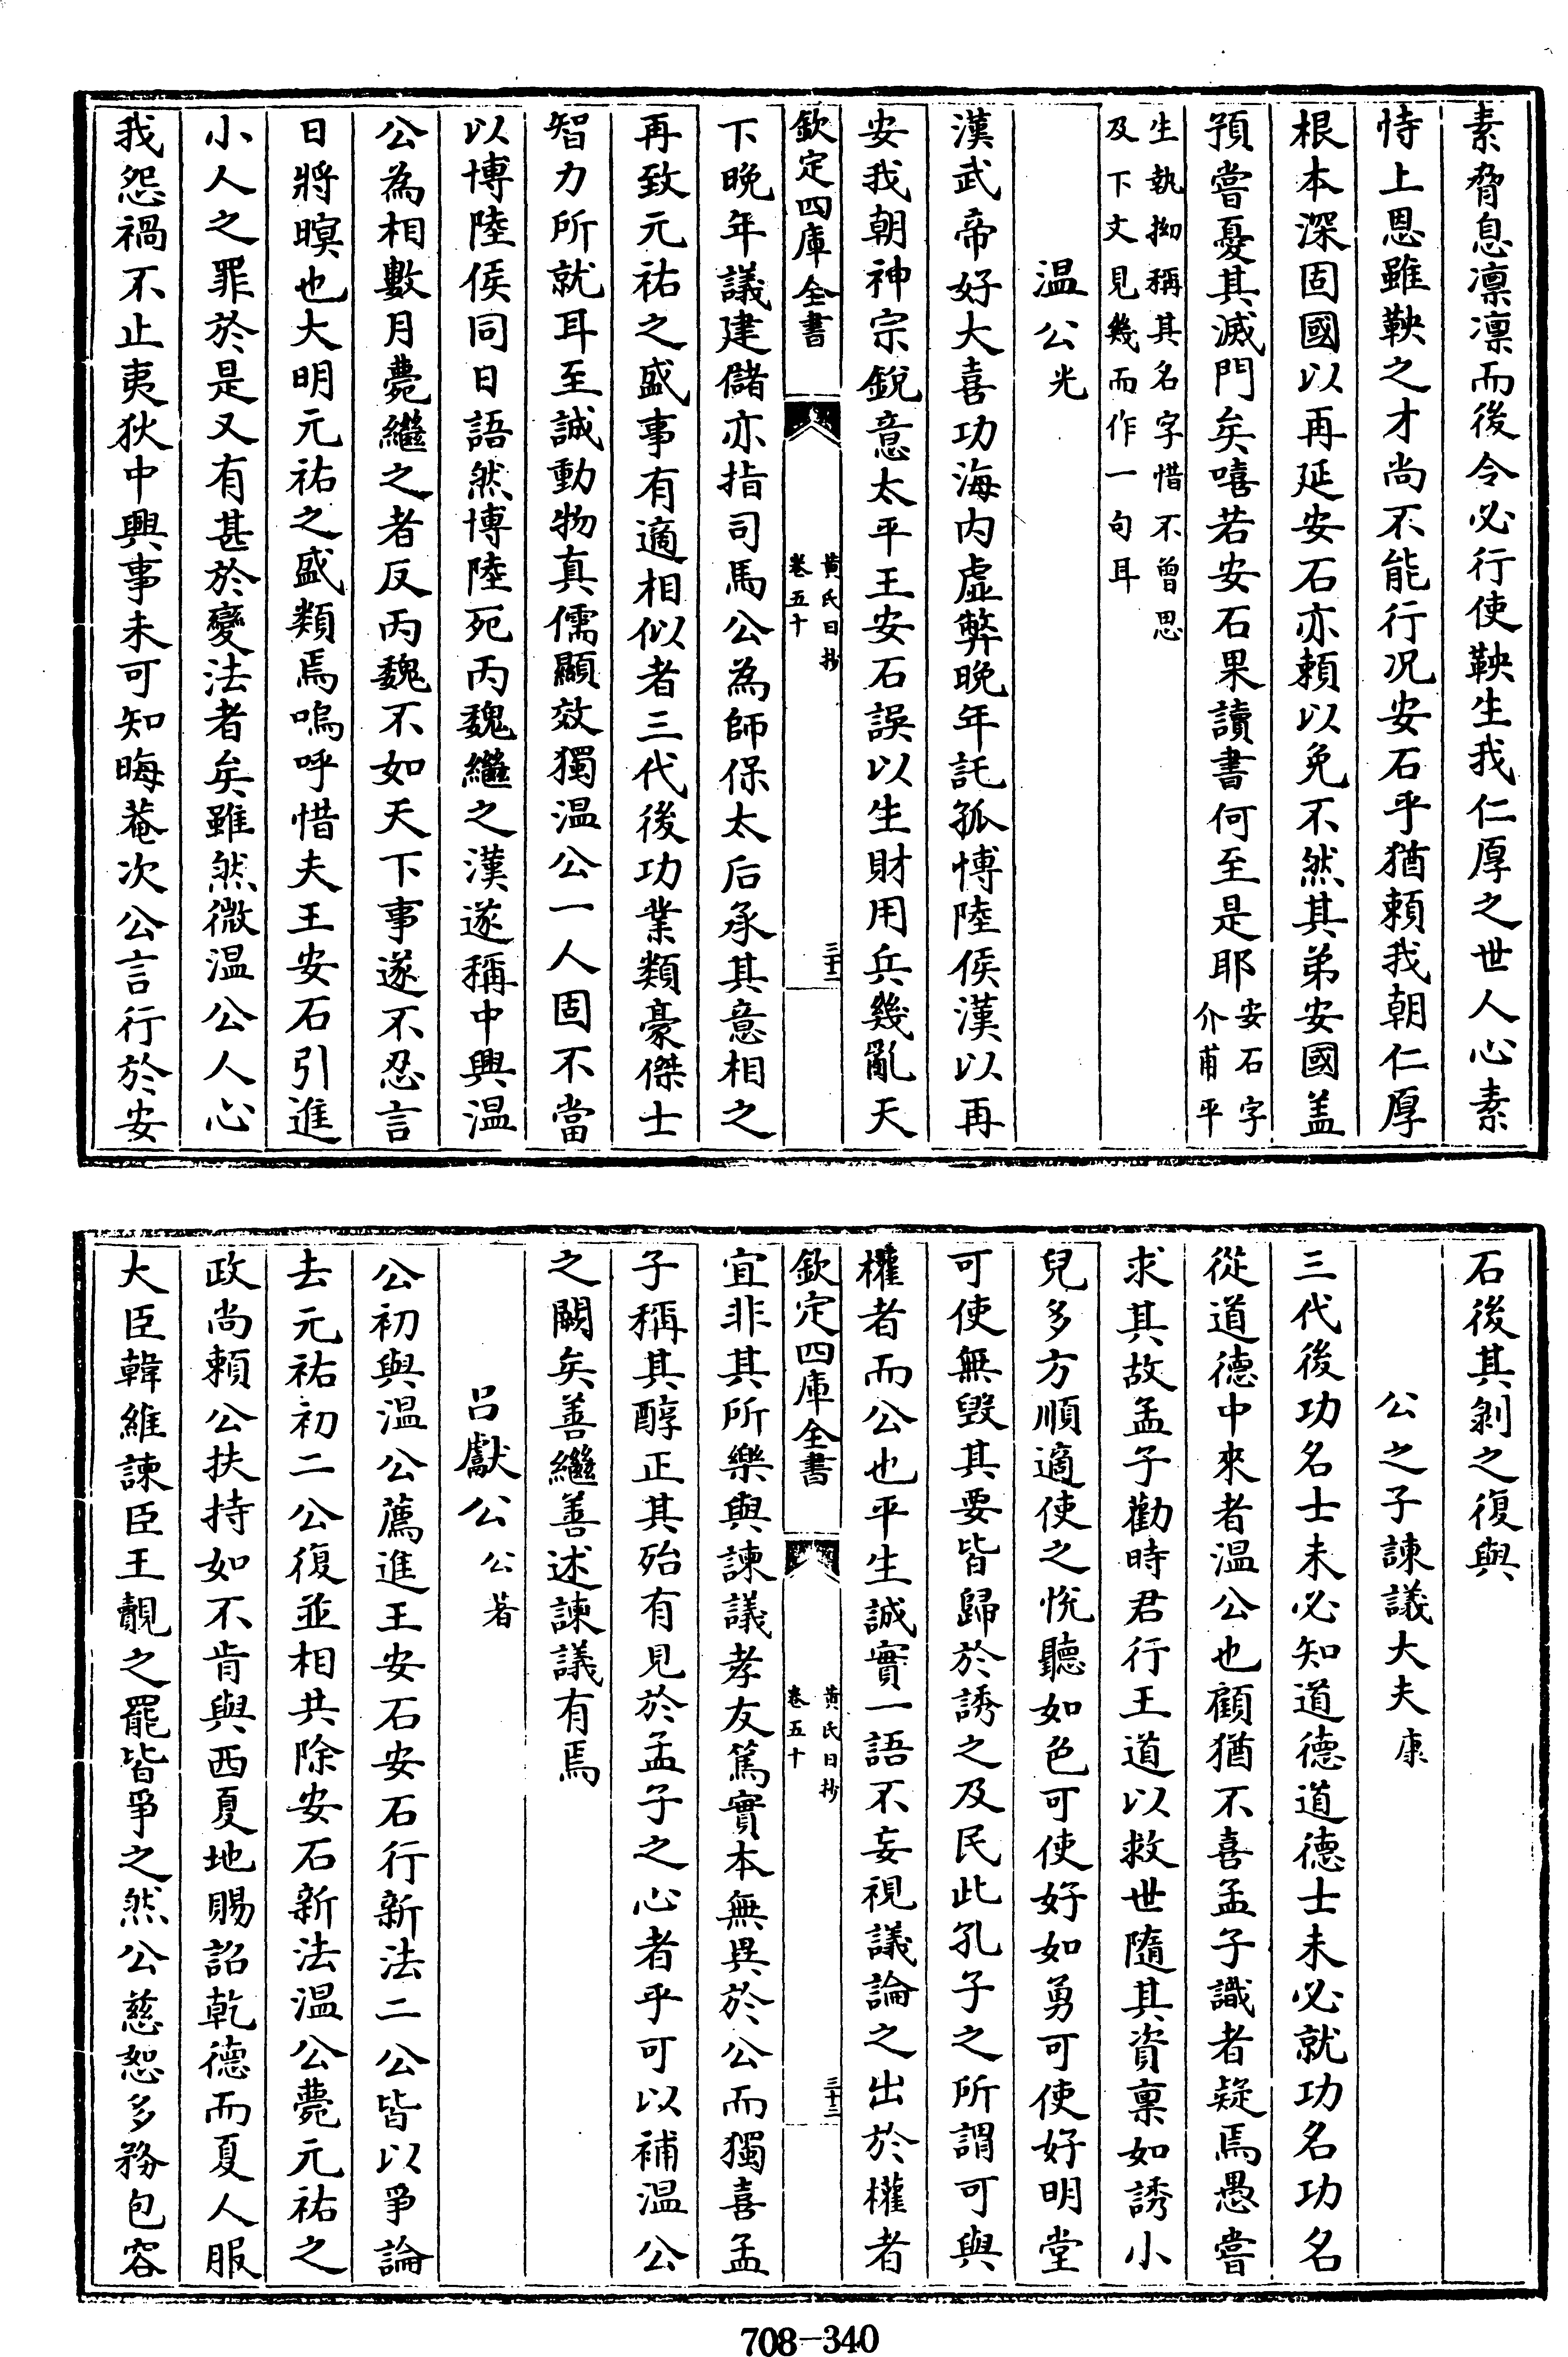 素脅息凛凛而後令必行使鞅生我仁厚之世人心素
恃上恩雖鞅之才尚不能行况安石乎猶賴我朝仁厚
根本深固國以再延安石亦賴以免不然其弟安國盖
預嘗憂其滅門矣嘻若安石果讀書何至是耶安石字介甫平
生執拗稱其名字惜不曾思
及下文見幾而作一句耳
温公光
漢武帝好大喜功海内虚弊晚年託孤博陸侯漢以再
安我朝神宗銳意太平王安石誤以生財用兵幾亂天
欽定四庫全書
黄氏日抄
卷五十
三十二
下晚年議建儲亦指司馬公為師保太后承其意相之
再致元祐之盛事有適相似者三代後功業類豪傑士
智力所就耳至誠動物真儒顯效獨温公一人固不當
以博陸侯同日語然博陸死丙魏繼之漢遂稱中興温
公為相數月薨繼之者反丙魏不如天下事遂不忍言
日將暝也大明元祐之盛類焉嗚呼惜夫王安石引進
小人之罪於是又有甚於變法者矣雖然微温公人心
我怨禍不止夷狄中興事未可知晦菴次公言行於安
石後其剝之復與
公之子諫議大夫康
三代後功名士未必知道德道德士未必就功名功名
從道德中來者温公也顧猶不喜孟子識者疑焉愚嘗
求其故孟子勸時君行王道以救世隨其資稟如誘小
兒多方順適使之悦聽如色可使好如勇可使好明堂
可使無毁其要皆歸於誘之及民此孔子之所謂可與
權者而公也平生誠實一語不妄視議論之出於權者
欽定四庫全書
黄氏日抄
卷五十
三十三
宜非其所樂與諫議孝友篤實本無異於公而獨喜孟
子稱其醇正其殆有見於孟子之心者乎可以補温公
之闕矣善繼善述諫議有焉
吕獻公公著
公初與温公薦進王安石安石行新法二公皆以爭論
去元祐初二公復並相共除安石新法温公薨元祐之
政尚賴公扶持如不肯與西夏地賜詔乾德而夏人服
大臣韓維諫臣王覿之罷皆爭之然公慈恕多務包容
708-340